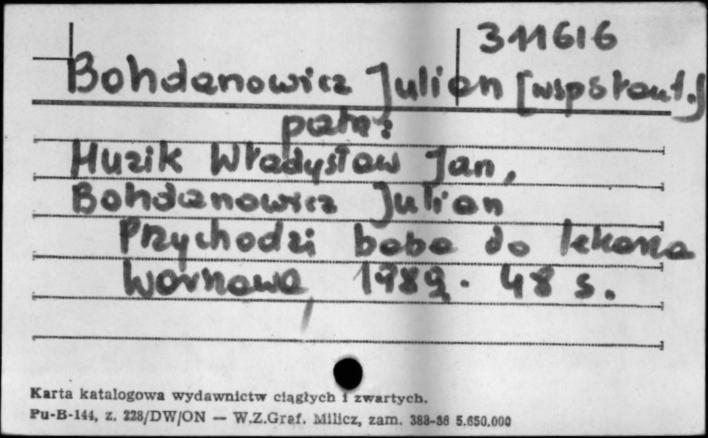 311616
Bohdanowicz Julian [współaut.]
patrz:
Muzik Władysław Jan,
Bohdanowicz Julian
Przychodzi baba do lekarza
Warszawa, 1989. 48 s.
Karta katalogowa wydawnictw ciągłych i zwartych.
Pu-B-144, z. 228/DW/ON — W.Z.Graf. Milicz, zam. 388-86 5.650.000